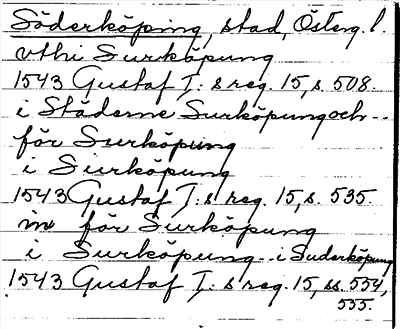 Söderköping, stad, Österg. l.
vthi Surköpung
1543 Gustaf I:s reg. 15, s. 508.
i Städerne Surköpung och --
för Surköpung
i Surköpung
1543 Gustaf I:s reg. 15, s. 535.
in för Surköpung
i Surköpung - i Suderköpung
1543 Gustaf I:s reg. 15, ss. 554,
555.